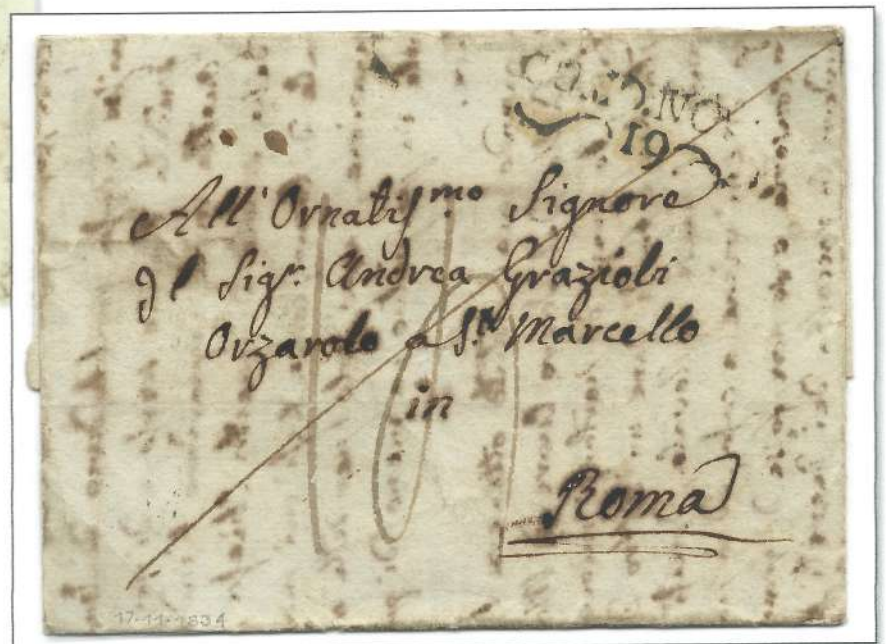 19
All' Ornatis.mo Signore
Il Sigr. Andrea Grazioli
Orzarolo a S.n Marcello
in
Roma
17-11-1834